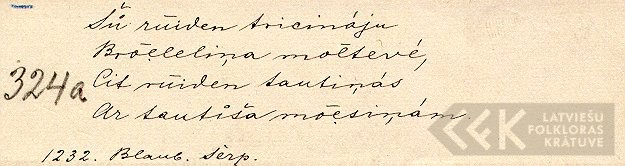 Šu rūiden tricināju
Brōļeliņa mōltevé,
Cit rūiden tautiņás
Ar tautiša mōsiņám.
324a
1232. Blaub. Sērp.
LATVIEŠU
FOLKLORAS
KRĀTUVE